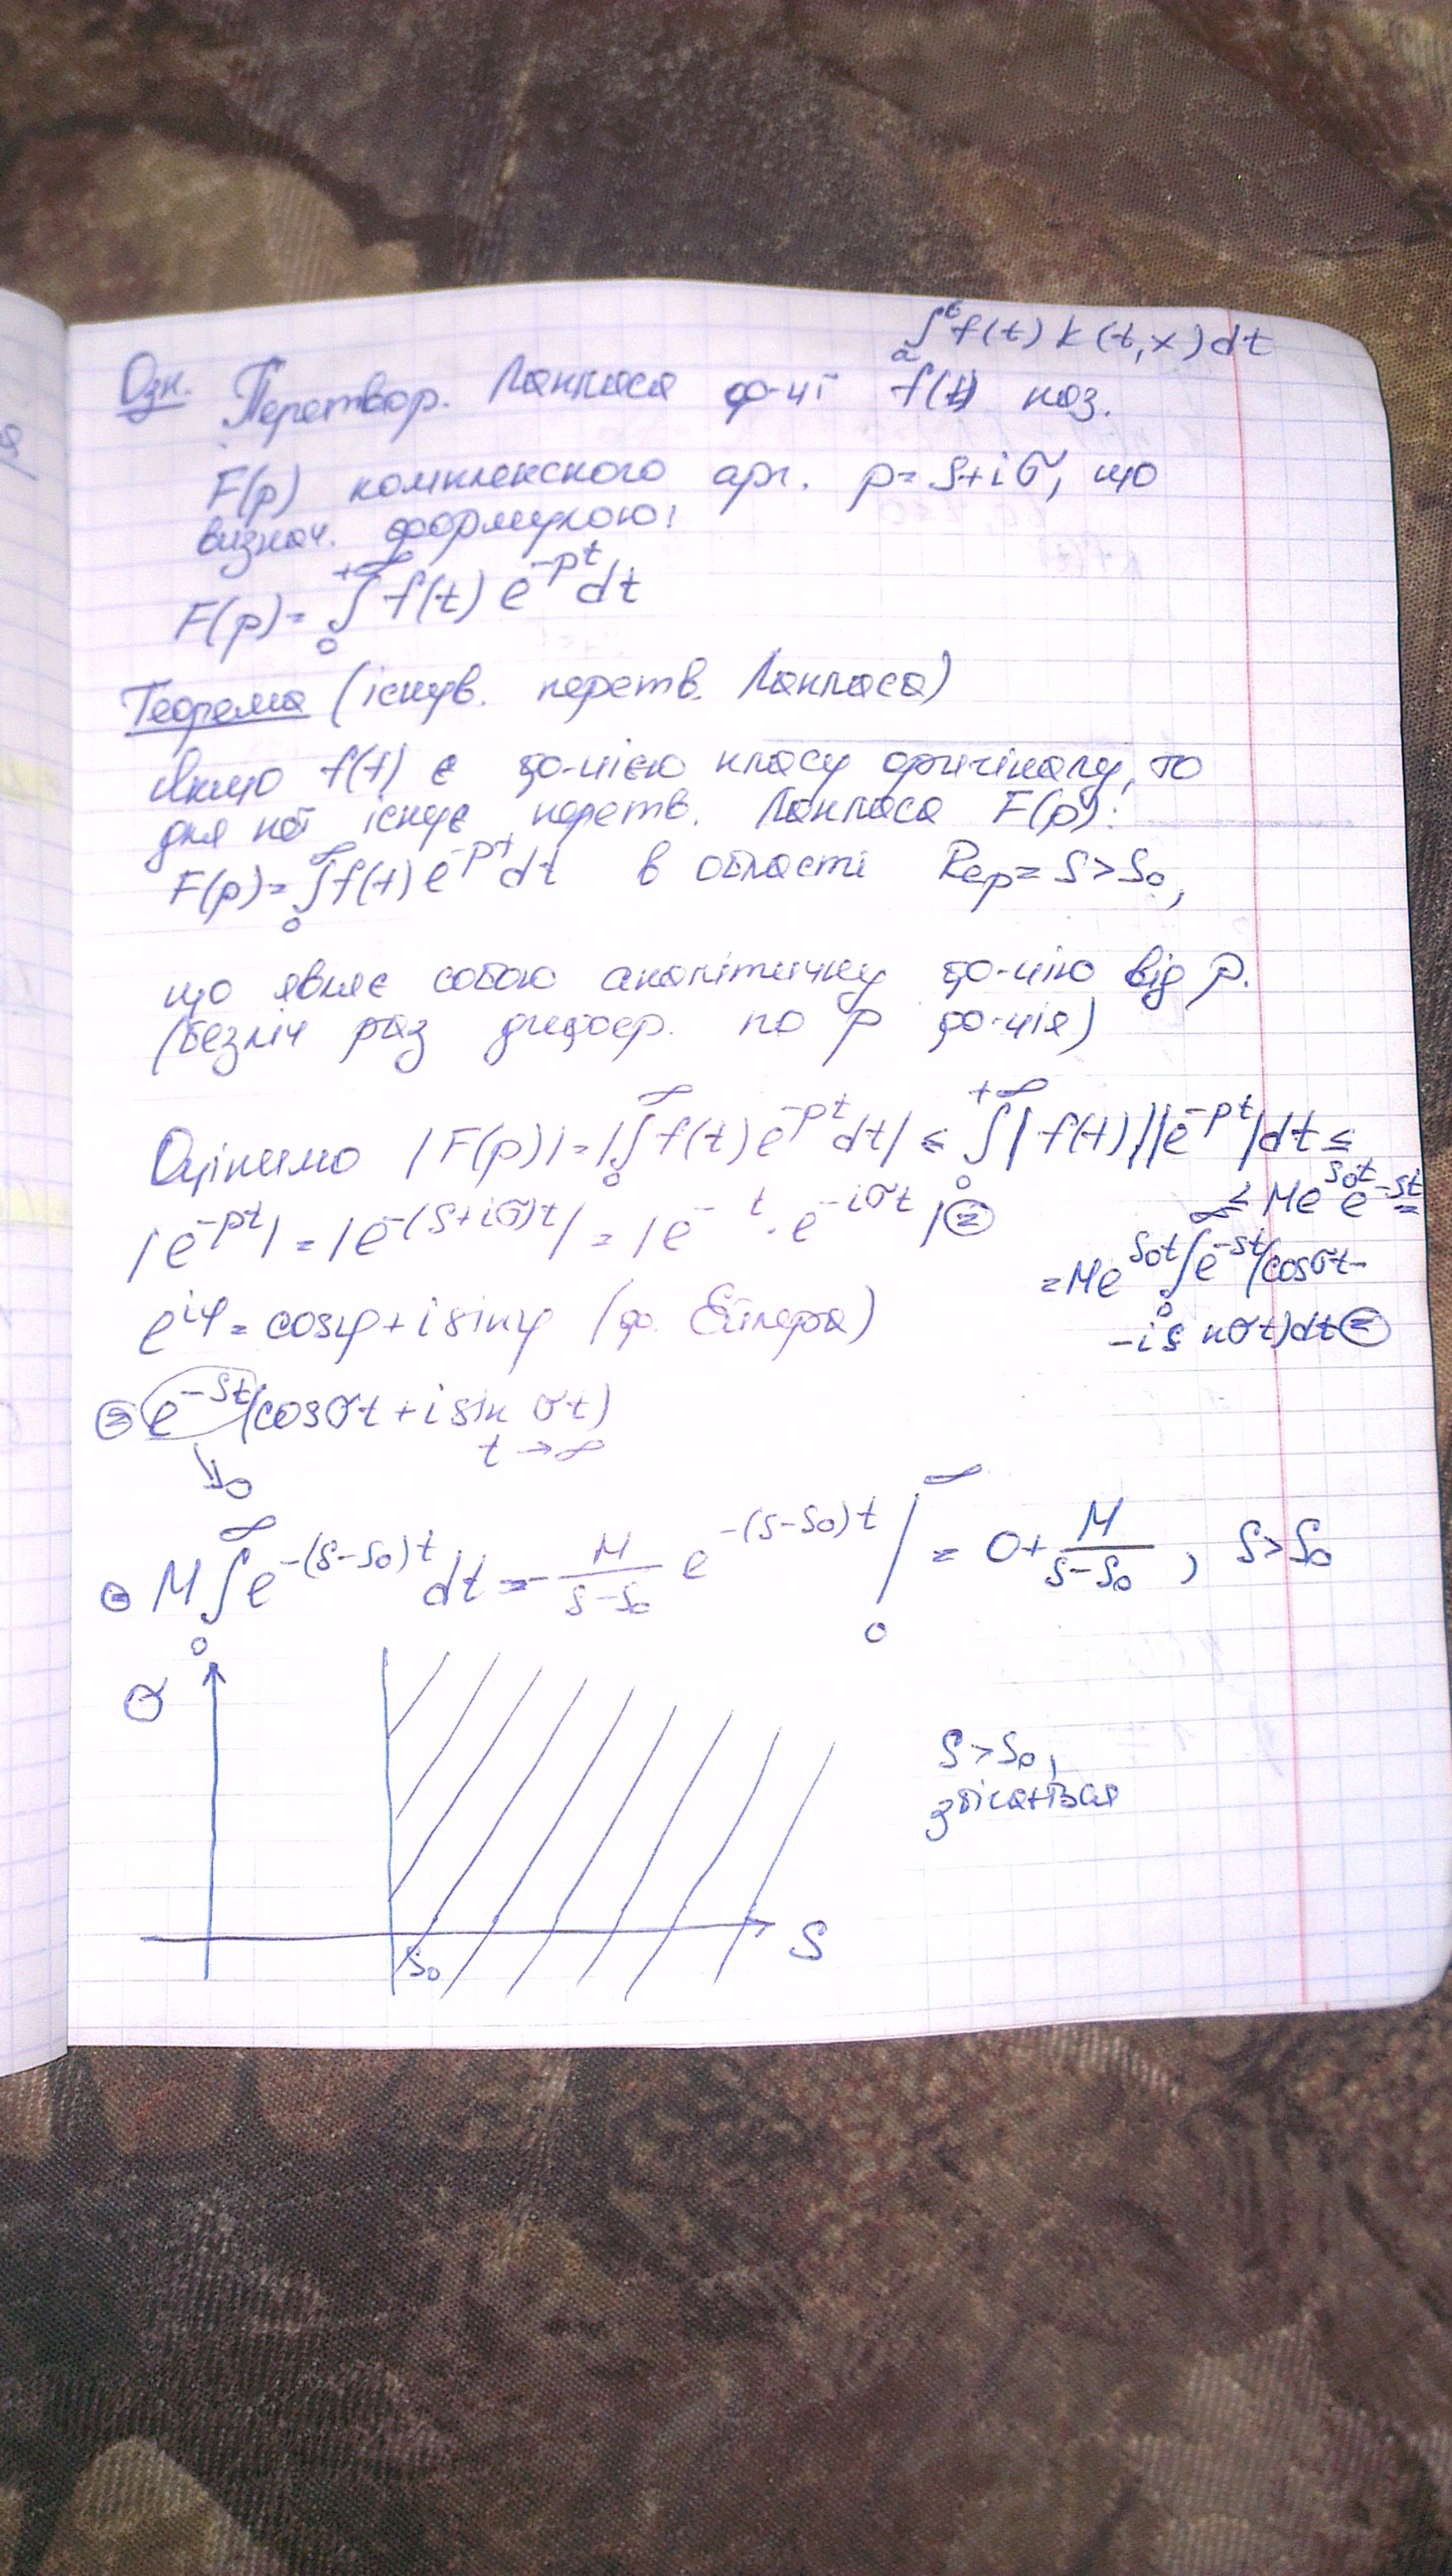 ∫ₐᵇ f(t) k(t,x)dt
Озн. Перетвор. Лапласа ф-ції f(t) наз.
F(p) комплексного арг. p = s+iσ, що
визнач. формулою:
F(p) = ∫₀^{+∞} f(t) e^{-pt} dt
Теорема (існув. перетв. Лапласа)
Якщо f(t) є ф-цією класу оригіналу, то
для неї існує перетв. Лапласа F(p):
F(p) = ∫₀^∞ f(t) e^{-pt} dt в області Re p = s > s₀,
що являє собою аналітичну ф-цію від p.
(безліч раз дифер. по p ф-ція)
Оцінимо |F(p)| = |∫₀^∞ f(t) e^{-pt} dt| ≤ ∫₀^{+∞} |f(t)||e^{-pt}|dt ≤
≤ Me^{s₀t} e^{-st} =
|e^{-pt}| = |e^{-(s+iσ)t}| = |e^{- t} · e^{-iσt}| ⊜
= Me^{s₀t} ∫₀^∞ e^{-st}(cosσt-
e^{iφ} = cosφ + i sinφ (ф. Ейлера)
-i s nσt)dt ⊜
⊜ e^{-st}(cosσt + i sin σt)
t→∞
↘0
⊜ M∫₀^∞ e^{-(s-s₀)t} dt = - M/(s-s₀) e^{-(s-s₀)t} |₀^∞ = 0 + M/(s-s₀) , s > s₀
σ
s > s₀,
s₀
S